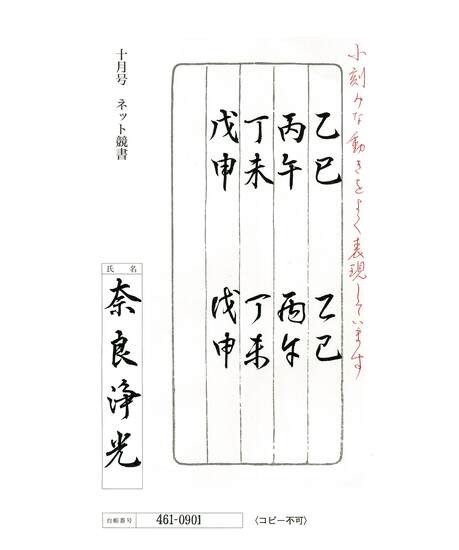 小刻みな動きをよく表現しています
乙巳 乙巳
丙午 丙午
丁未 丁未
戊申 戊申
十月号 ネット競書
氏名
奈良浄光
台帳番号 461-0901
〈コピー不可〉